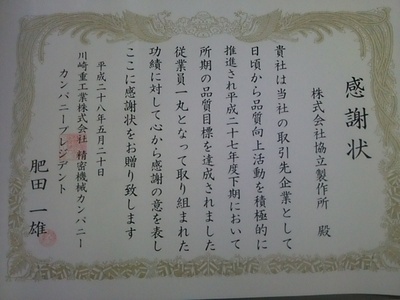 感謝状
株式会社協立製作所 殿
貴社は当社の取引先企業として
日頃から品質向上活動を積極的に
推進され平成二十七年度下期において
所期の品質目標を達成されました
従業員一丸となって取り組まれた
功績に対して心から感謝の意を表し
ここに感謝状をお贈り致します
平成二十八年五月二十日
川崎重工業株式会社 精密機械カンパニー
カンパニープレジデント
肥田 一雄